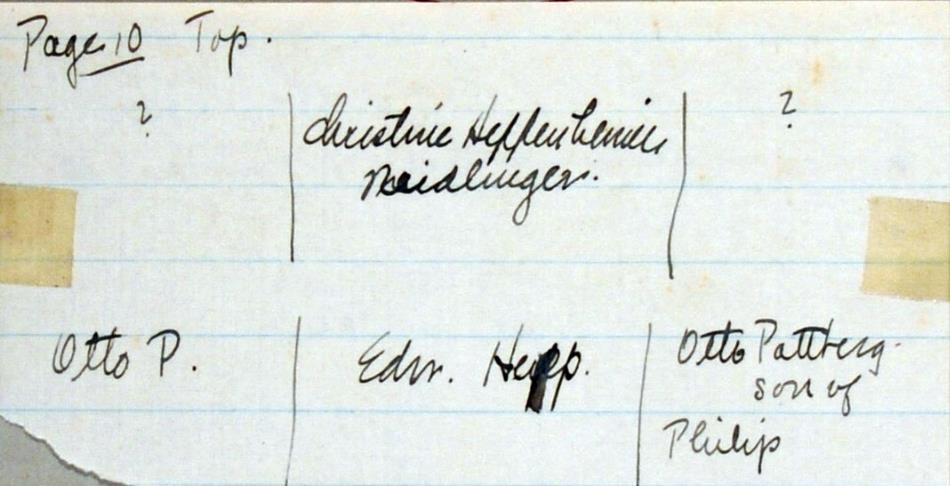 Page 10 Top.
? Christine Heppenheimer ?
Neidlinger.
Otto P. Edw. Hepp. Otto Pattberg.
son of
Philip